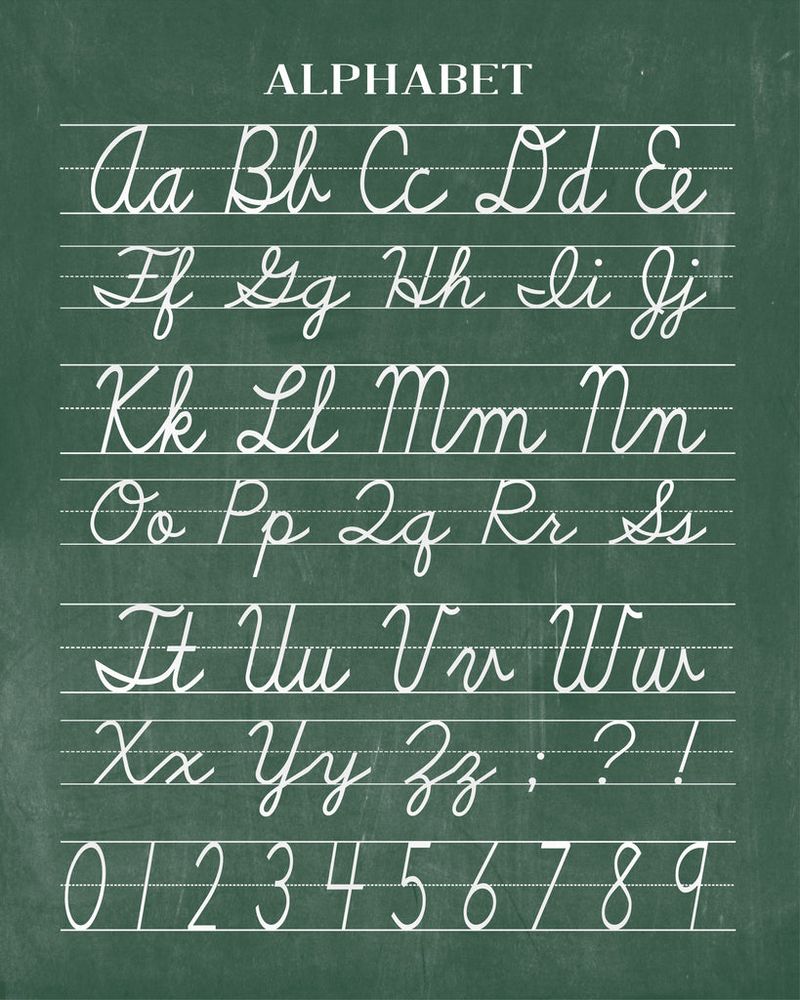 ALPHABET
Aa Bb Cc Dd Ee
Ff Gg Hh Ii Jj
Kk Ll Mm Nn
Oo Pp Qq Rr Ss
Tt Uu Vv Ww
Xx Yy Zz ; ? !
0 1 2 3 4 5 6 7 8 9